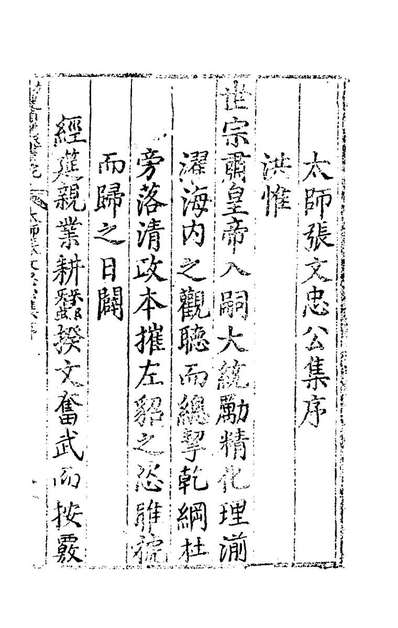 太師張文忠公集序
洪惟
世宗肅皇帝入嗣大統勵精化理湔
濯海内之觀聽而總挈乾綱杜
旁落清政本摧左貂之恣雎
而歸之日闢
經筵親業耕蠶揆文奮武而按覈
太師張文忠公集序